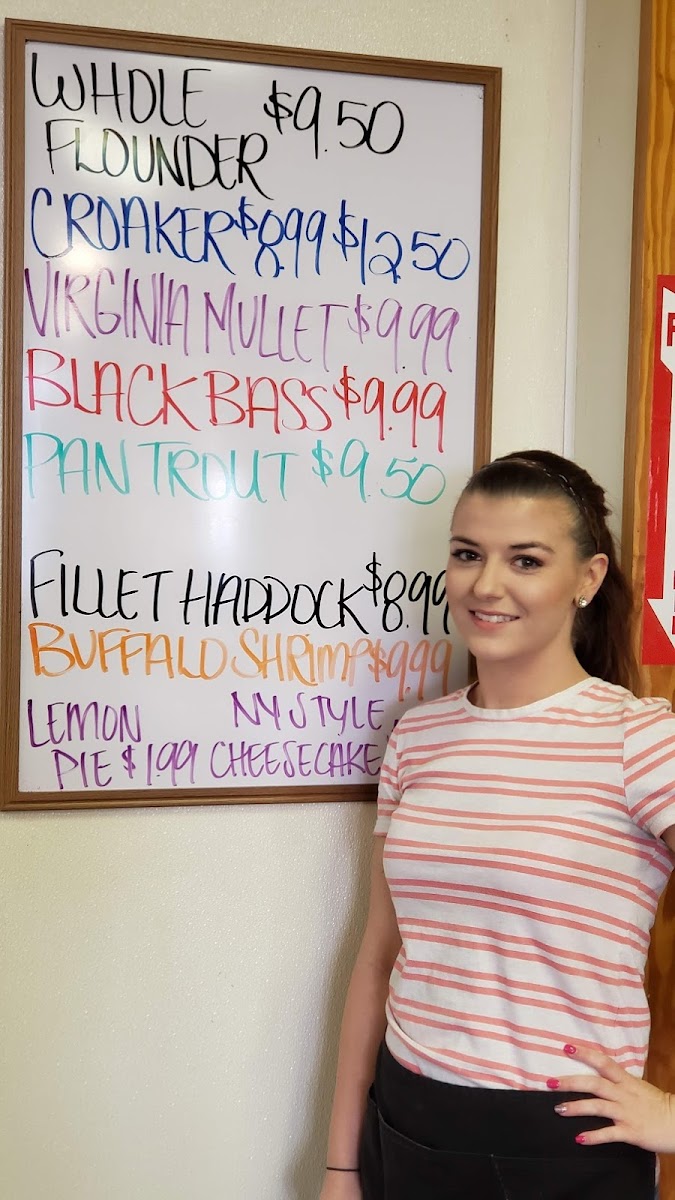 WHOLE $9.50
FLOUNDER
CROAKER $8.99 $12.50
VIRGINIA MULLET $9.99
BLACK BASS $9.99
PAN TROUT $9.50
FILLET HADDOCK $8.99
BUFFALO SHRIMP $9.99
LEMON NY STYLE
PIE $1.99 CHEESECAKE